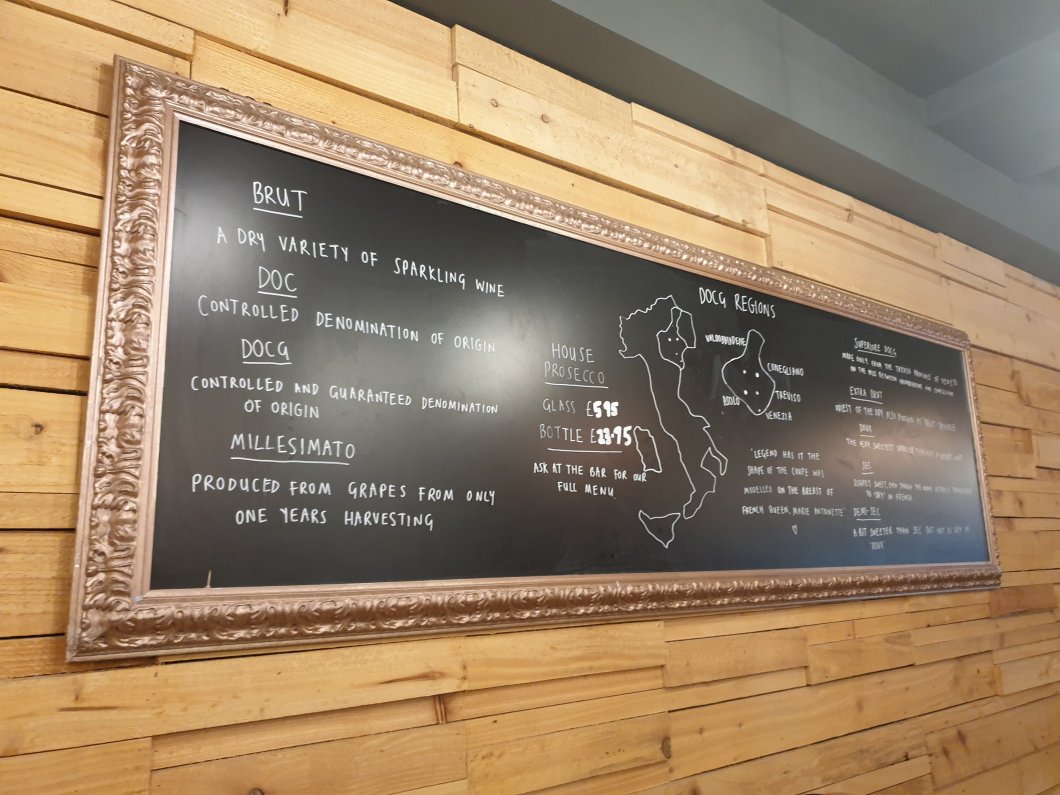 BRUT
A DRY VARIETY OF SPARKLING WINE
DOC
CONTROLLED DENOMINATION OF ORIGIN
DOCG
CONTROLLED AND GUARANTEED DENOMINATION
OF ORIGIN
MILLESIMATO
PRODUCED FROM GRAPES FROM ONLY
ONE YEARS HARVESTING
HOUSE
PROSECCO
GLASS £5.95
BOTTLE £23.95
ASK AT THE BAR FOR OUR
FULL MENU.
DOCG REGIONS
VALDOBBIADENE
CONEGLIANO
ASOLO
TREVISO
VENEZIA
'LEGEND HAS IT THE
SHAPE OF THE COUPE WAS
MODELLED ON THE BREAST OF
FRENCH QUEEN, MARIE ANTOINETTE'
SUPERIORE DOCG
MADE ONLY FROM THE PROVINCE OF
ON THE HILLS BETWEEN VALDOBBIADENE AND CONEGLIANO
EXTRA BRUT
DRIEST OF THE DRY, ALSO KNOWN AS BRUT
DOUX
THE VERY SWEETEST
SEC
SLIGHTLY SWEET, EVEN THOUGH THE WORD
TO 'DRY' IN FRENCH
DEMI-SEC
A BIT SWEETER THAN 'SEC' BUT NOT AS DRY AS
'DOUX'